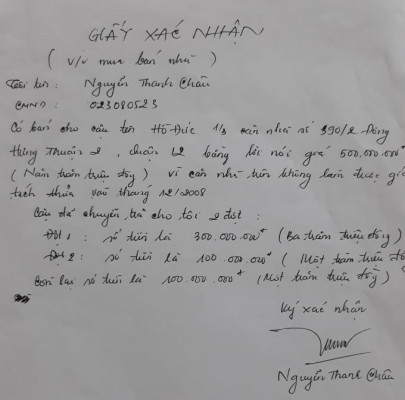 GIẤY XÁC NHẬN
( v/v mua bán nhà )
Tôi tên : Nguyễn Thanh Châu
CMND : 023080523
Có bán cho cậu tên Hồ Đức 1/3 căn nhà số 390/2 Đông
Hưng Thuận 2, Quận 12 bằng lời nói giá 500.000.000đ
( Năm trăm triệu đồng ) vì căn nhà trên không làm được giấy
tách thửa vào tháng 12/2008
Cậu đã chuyển trả cho tôi 2 đợt :
Đợt 1 : số tiền là 300.000.000đ ( Ba trăm triệu đồng )
Đợt 2 : số tiền là 100.000.000đ ( Một trăm triệu đồ
Còn lại số tiền là 100.000.000đ ( Một trăm triệu đồng )
Ký xác nhận
Nguyễn Thanh Châu